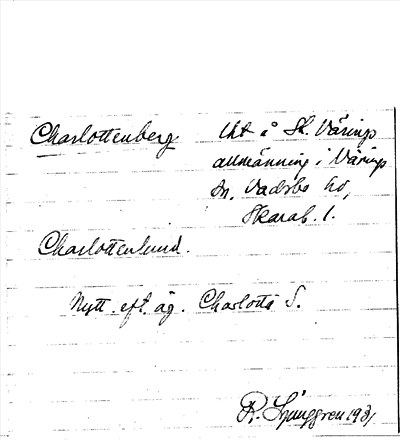 Charlottenberg
lht å St. Värings
allmänning i Värings
sn, Vadsbo hd,
Skarab. l.
Charlottenlund.
Nytt. eft. äg. Charlotta S.
R. Ljunggren 1931